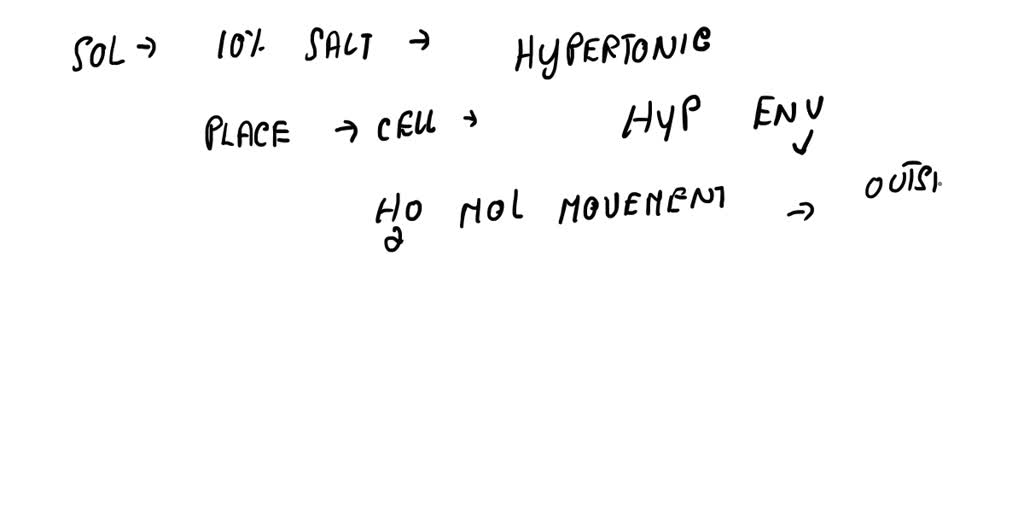 SOL → 10% SALT → HYPERTONIC
PLACE → CELL → HYP ENV
H2O MOL MOVEMENT → OUTSI